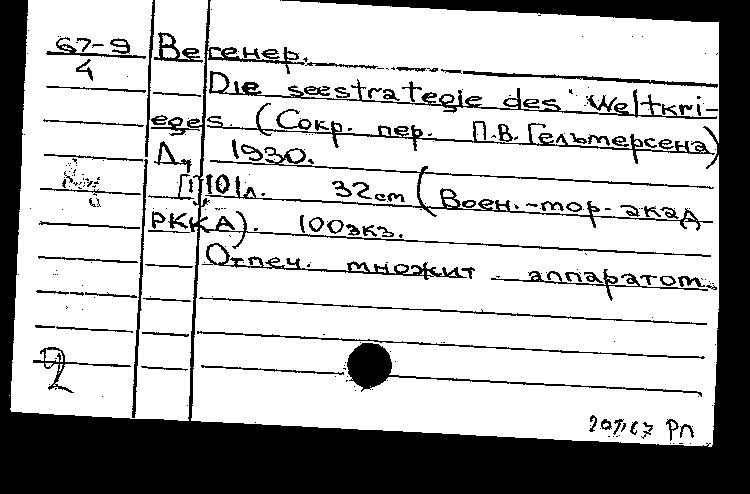 67-9 Вегенер.
4
Die seestrategie des Weltkri-
eges. (Сокр. пер. П.В. Гельмерсена)
Л., 1930.
[1] 101 л. 32 cm (Воен.-мор. акад
РККА). 100 экз.
Отпеч. множит. аппаратом.
2
РЛ